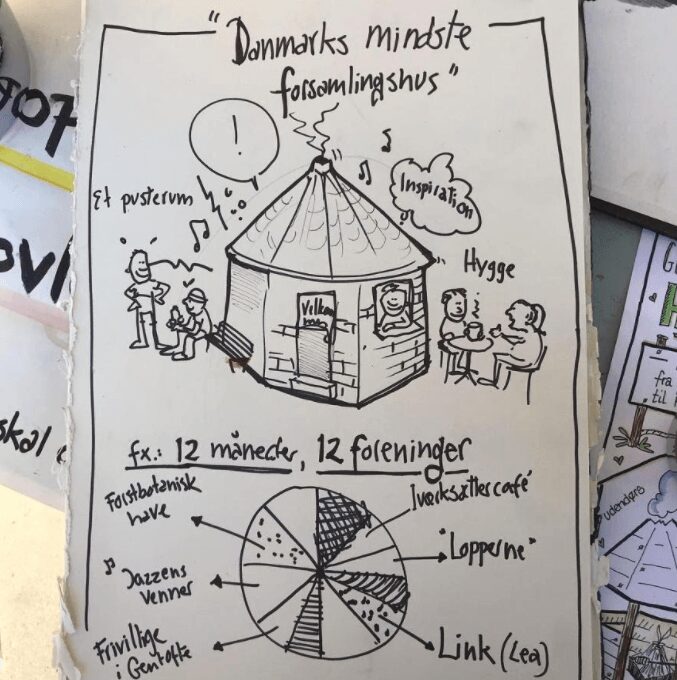 "Danmarks mindste
forsamlingshus"
!
Et pusterum
Inspiration
Hygge
Velkommen
fx.: 12 måneder, 12 foreninger
Forstbotanisk
have
Iværksættercafé
"Lopperne"
Jazzens
venner
Frivillige
i Gentofte
Link (Lea)
07
skal
fra
til
udendørs